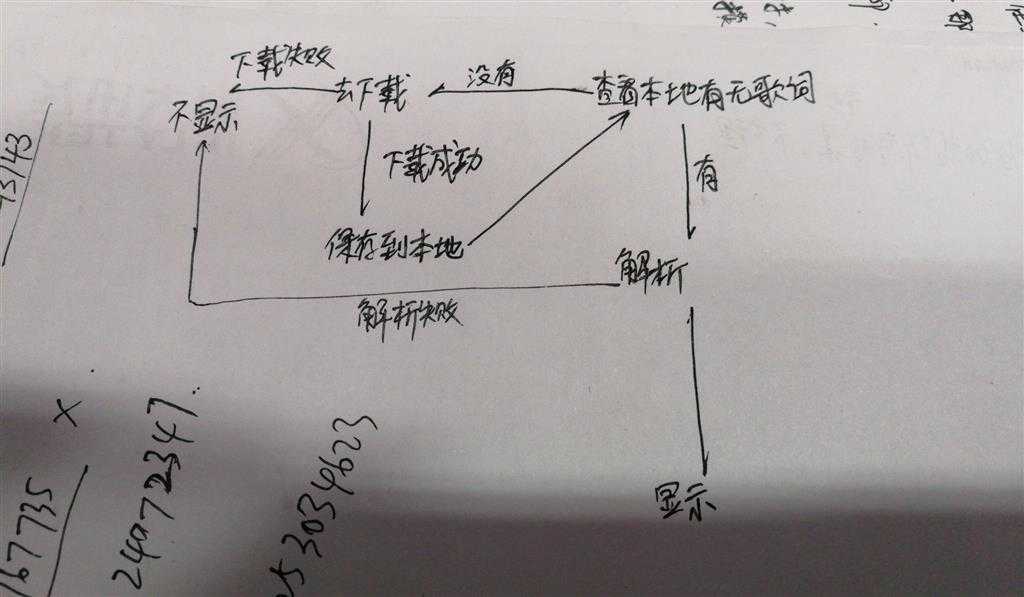 下载失败
去下载
没有
查看本地有无歌词
不显示
下载成功
有
保存到本地
解析
解析失败
显示
X
24972347
53034623
167735